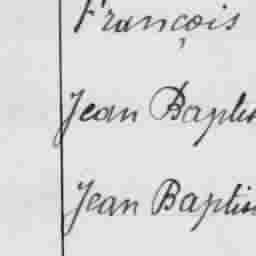 François
Jean Baptis
Jean Baptis